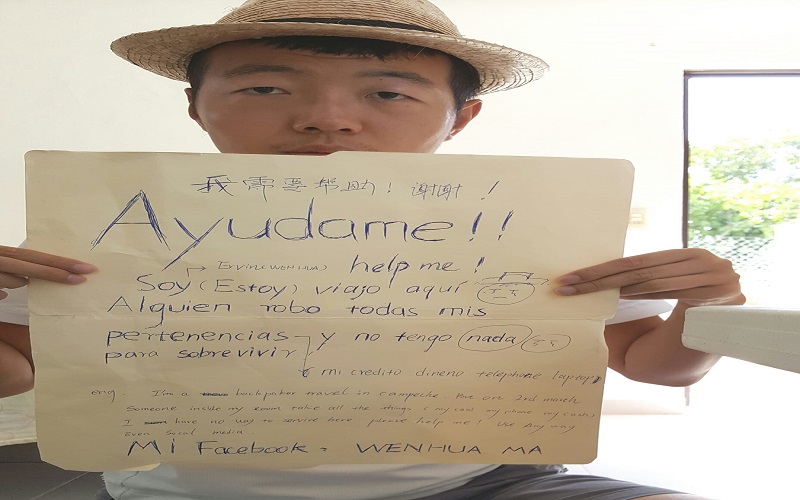 我需要帮助！谢谢！
Ayudame!!
Ervin(WENHUA) help me!
Soy (Estoy) viajo aquí
Alguien robo todas mis
pertenencias y no tengo nada
para sobrevivir
mi credito dineno telephone laptop
eng. I'm a backpaker travel in campeche. But on 2nd march
Someone inside my room take all the things (my card my phone my cash)
I have no way to service here please help me! Use Any way
Even Social media.
Mi Facebook = WENHUA MA